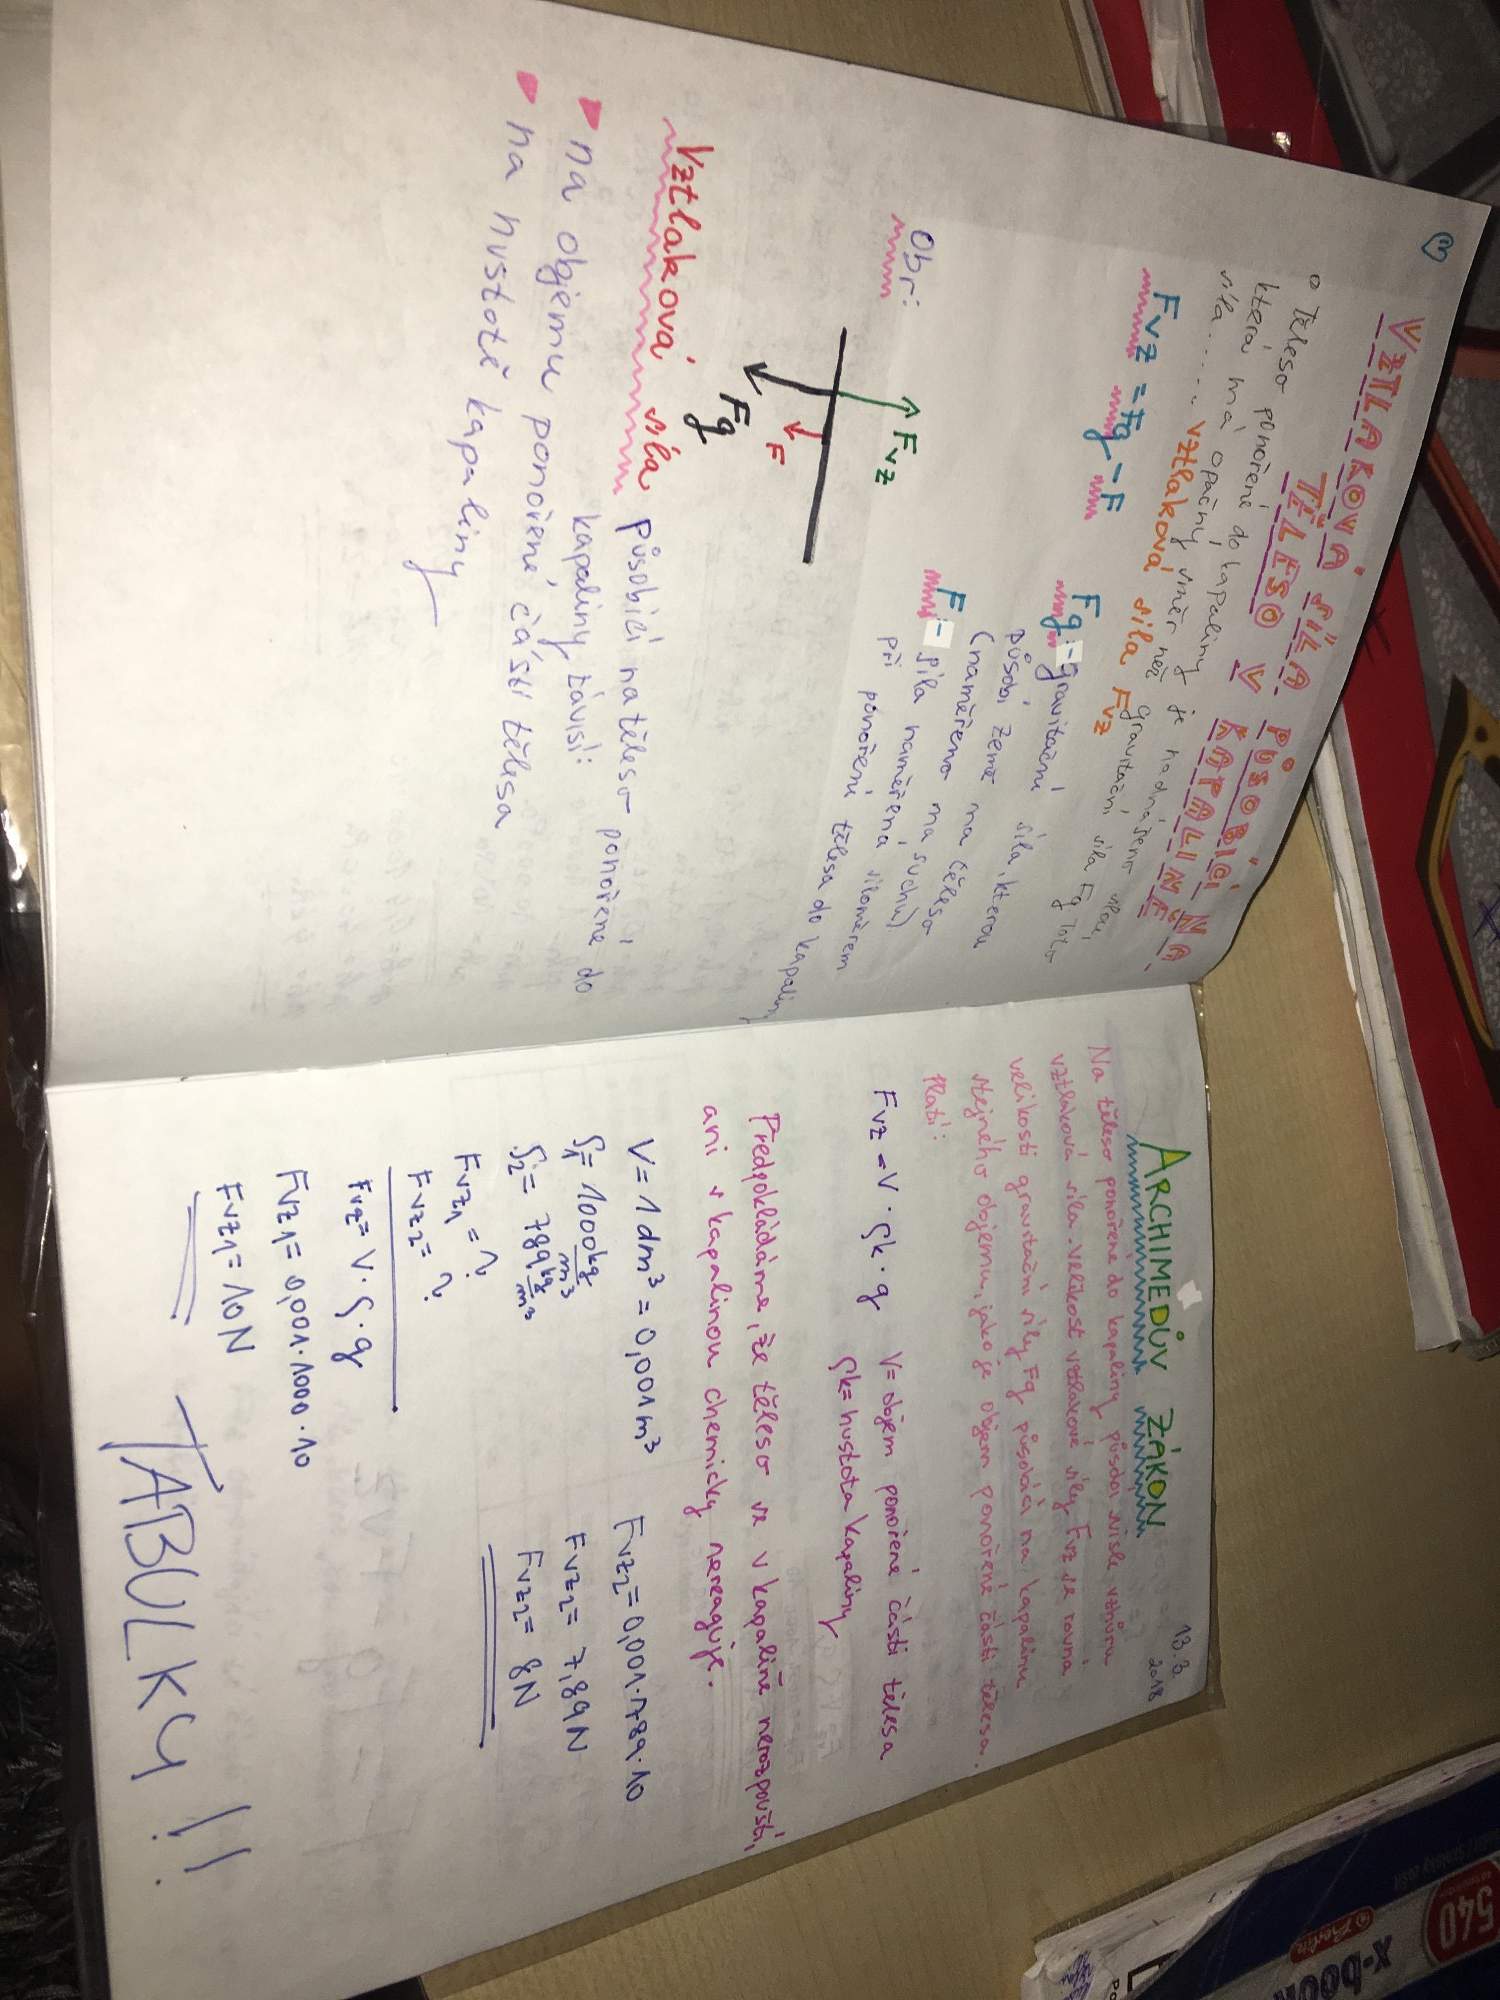 VZTLAKOVÁ SÍLA PŮSOBÍCÍ NA
TĚLESO V KAPALINĚ
Těleso ponořené do kapaliny je nadnášeno silou,
která má opačný směr než gravitační síla Fg. Tato
síla..... vztlaková síla Fvz
Fvz = Fg - F
Fg - gravitační síla, kterou
působí země na těleso
(naměřeno na suchu)
F - síla naměřená siloměrem
při ponoření tělesa do kapaliny
Obr:
Fvz
F
Fg
Vztlaková síla působící na těleso ponořené do
kapaliny závisí:
na objemu ponořené části tělesa
na hustotě kapaliny
13.3.
2018
ARCHIMEDŮV ZÁKON
Na těleso ponořené do kapaliny působí svisle vzhůru
vztlaková síla. Velikost vztlakové síly Fvz se rovná
velikosti gravitační síly Fg působící na kapalinu
stejného objemu, jako je objem ponořené části tělesa.
Platí:
Fvz = V · ρk · g V = objem ponořené části tělesa
ρk = hustota kapaliny
Předpokládáme, že těleso se v kapalině nerozpouští,
ani s kapalinou chemicky nereaguje.
V = 1 dm³ = 0,001 m³
ρ1 = 1000 kg/m³
ρ2 = 789 kg/m³
Fvz1 = ?
Fvz2 = ?
Fvz = V · ρ · g
Fvz1 = 0,001 · 1000 · 10
Fvz1 = 10N
Fvz2 = 0,001 · 789 · 10
Fvz2 = 7,89 N
Fvz2 = 8N
TABULKY !!
540
Berlin
x-book